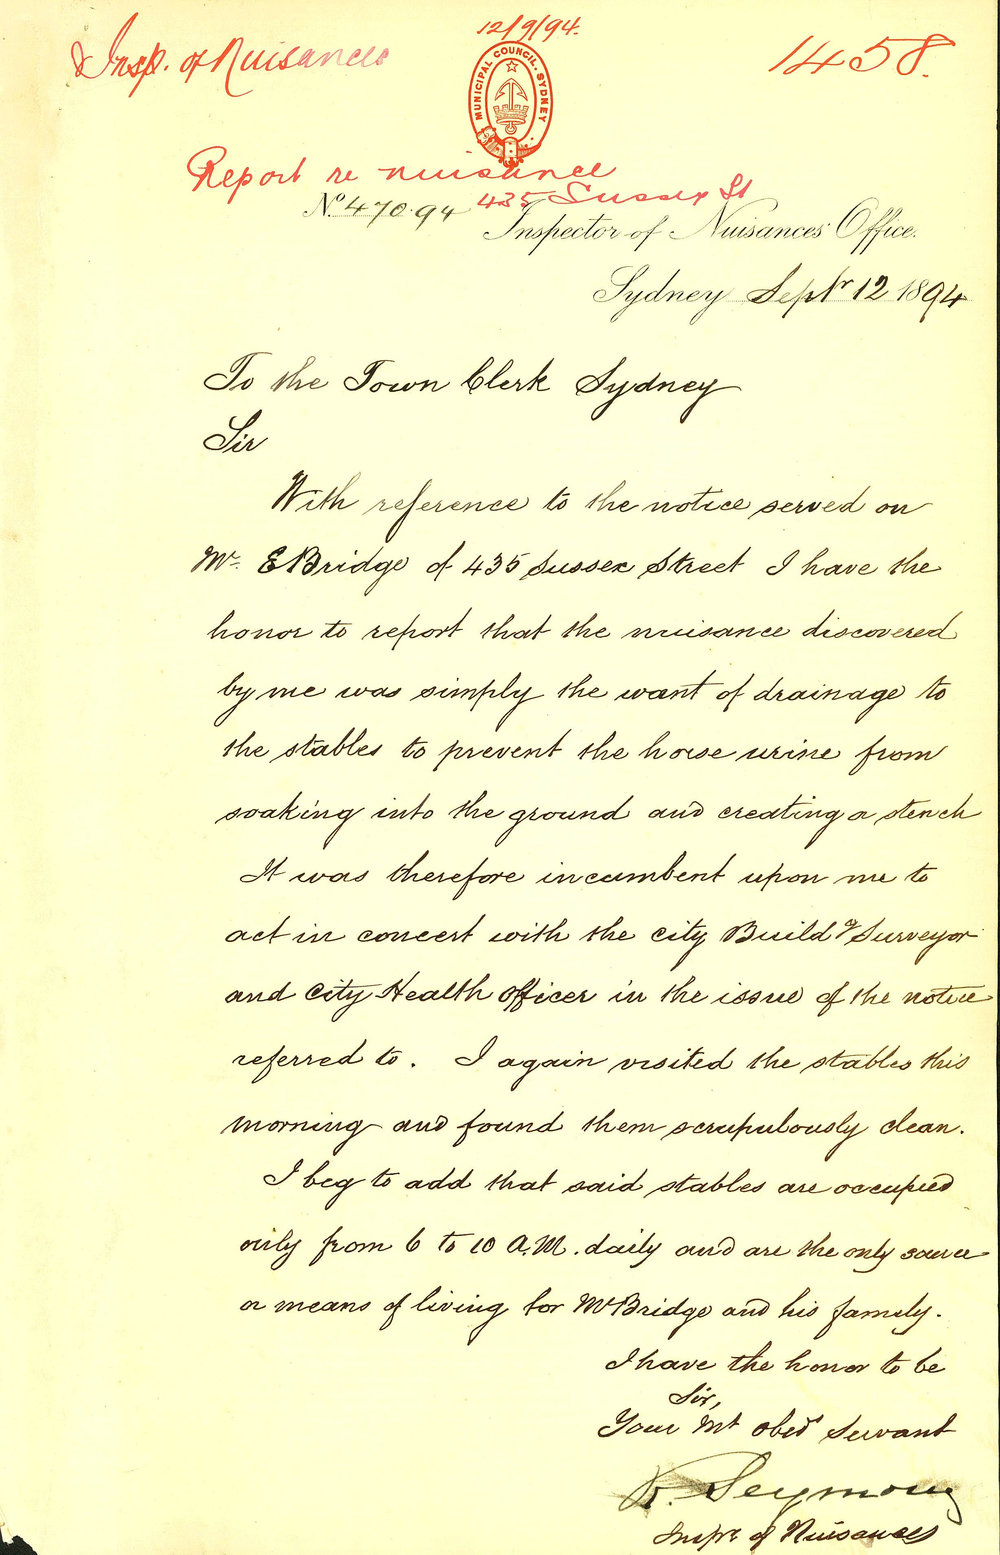 12/9/94.
Insp. of Nuisances
1458.
MUNICIPAL COUNCIL. SYDNEY
Report re nuisance
435 Sussex St
No. 470.94
Inspector of Nuisances' Office.
Sydney Septr 12 1894
To the Town Clerk Sydney
Sir
With reference to the notice served on
Mr. E Bridge of 435 Sussex Street I have the
honor to report that the nuisance discovered
by me was simply the want of drainage to
the stables to prevent the horse urine from
soaking into the ground and creating a stench
It was therefore incumbent upon me to
act in concert with the city Buildg Surveyor
and City Health officer in the issue of the notice
referred to. I again visited the stables this
morning and found them scrupulously clean.
I beg to add that said stables are occupied
only from 6 to 10 A.M. daily and are the only source
or means of living for Mr Bridge and his family.
I have the honor to be
Sir,
Your Mt obedt Servant
R. Seymour
Inspr of Nuisances